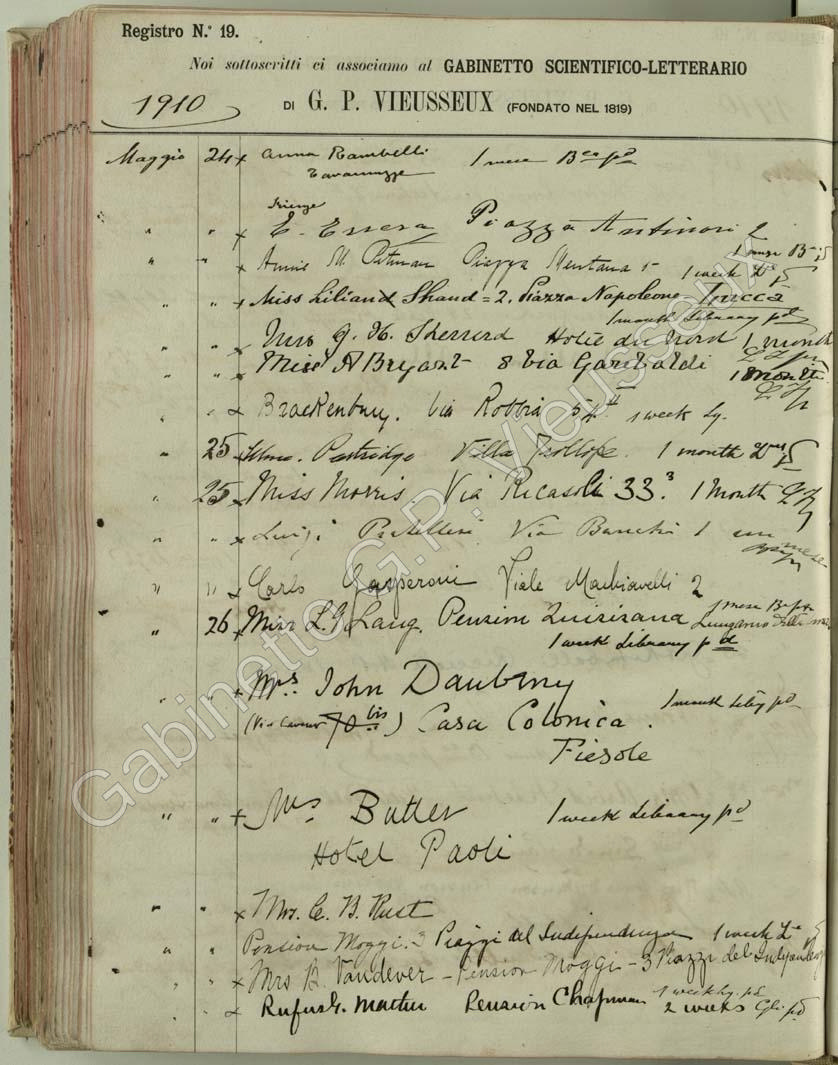 Registro N.° 19.
Noi sottoscritti ci associamo al GABINETTO SCIENTIFICO-LETTERARIO
1910
DI G. P. VIEUSSEUX (FONDATO NEL 1819)
Maggio 24 x Anna Rambelli 1 mese
Tavarnuzze
" " x E. Essera Piazza Antinori 2
" " x Annie M. Pitman Piazza Mentana 1 week
" " x Miss Lilian Shand = 2. Piazza Napoleone Lucca
1 month Library pd
" " x Mrs G. H. Sherrerd Hotel du Nord 1 month
" " x Miss A Bryant 8 Via Garibaldi 1 Month
" " x Brackenbury. Via Robbia 54 1 week Ly.
" 25 x Partridge Villa Trollope. 1 month
" 25 x Miss Morris. Via Ricasoli 33. 1 Month
" " x Luigi Via Banchi 1 un mese
" " x Carlo Gasperoni Viale Machiavelli 2
1 mese
" 26 x Miss L. G. Lang. Pension Quisisana Lungarno
1 week Library pd
" " x Mrs John Daubeny
1 month
(Via Cavour 70 bis) Casa Colonica.
Fiesole
" " x Mrs. Butler 1 week Library pd
Hotel Paoli
" " x Mrs. C. B. Rust
Pension Moggi. 3 Piazza del Independenza 1 week
" " x Mrs B. Vandever - Pension Moggi - 3 Piazza del Independenza
1 week
" " x Rufus G. Pension Chapman 2 weeks
Gabinetto G.P. Vieusseux